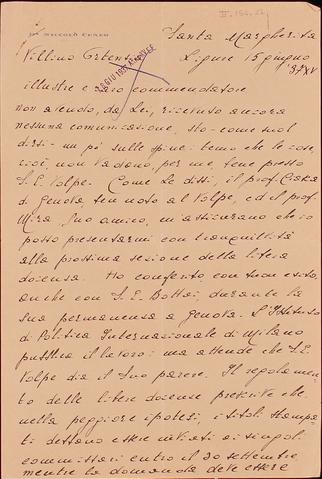 II, 154, 22
DR. NICCOLÒ CUNEO
Santa Margherita
Villino Ortensia
Ligure 15 giugno
37 XV
GIU 1937
illustre e caro commendatore
non avendo, da Lei, ricevuto ancora
nessuna comunicazione, sto - come suol
dirsi - un po' sulle spine: temo che le cose,
cioè, non vadano, per me, bene presso
S. E. Volpe. Come Le dissi, il prof.
di Genova, ben noto al Volpe, ed il prof.
Mira, Suo amico, m'assicurano che io
posso presentarmi con tranquillità
alla prossima sezione della libera
docenza. Ho conferito, con buon esito,
anche con S. E. Bottai, durante la
sua permanenza a Genova. L'Istituto
di Politica Internazionale di Milano
pubblica il lavoro: ma attende che S. E.
Volpe dia il Suo parere. Il regolamen-
to delle libere docenze prescrive che,
nella peggiore ipotesi, i titoli stampa-
ti debbano essere inviati ai singoli
commissari entro il 20 settembre,
mentre la domanda deve essere